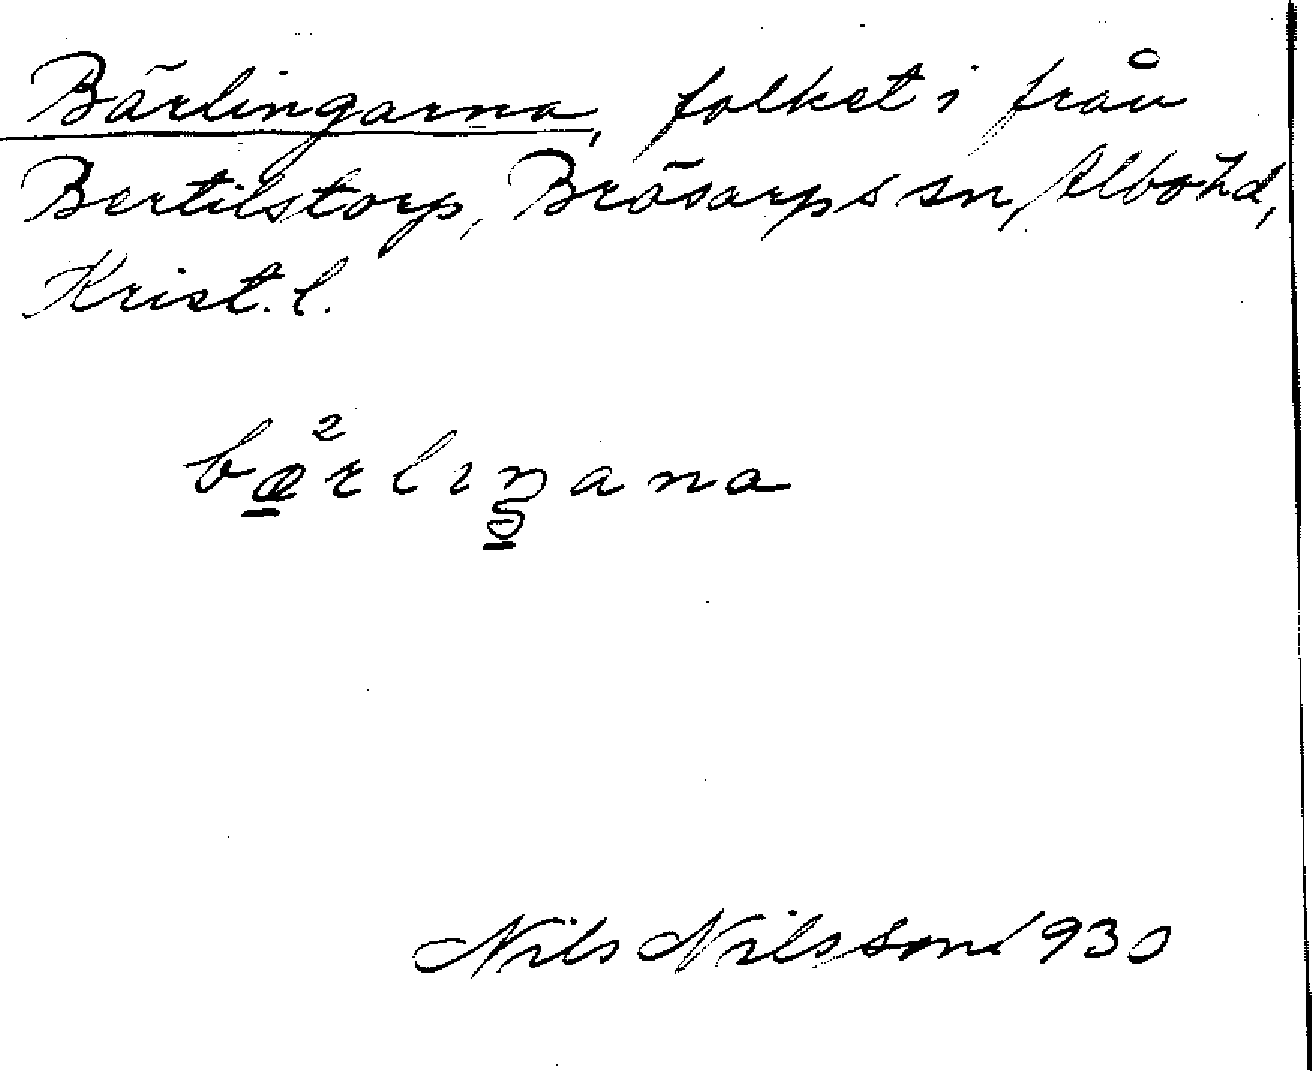 Bärlingarna, folket i från
Bertilstorp, Brösarps sn, Albo hd,
Krist. l.
bærlıŋana
Nils Nilsson 1930